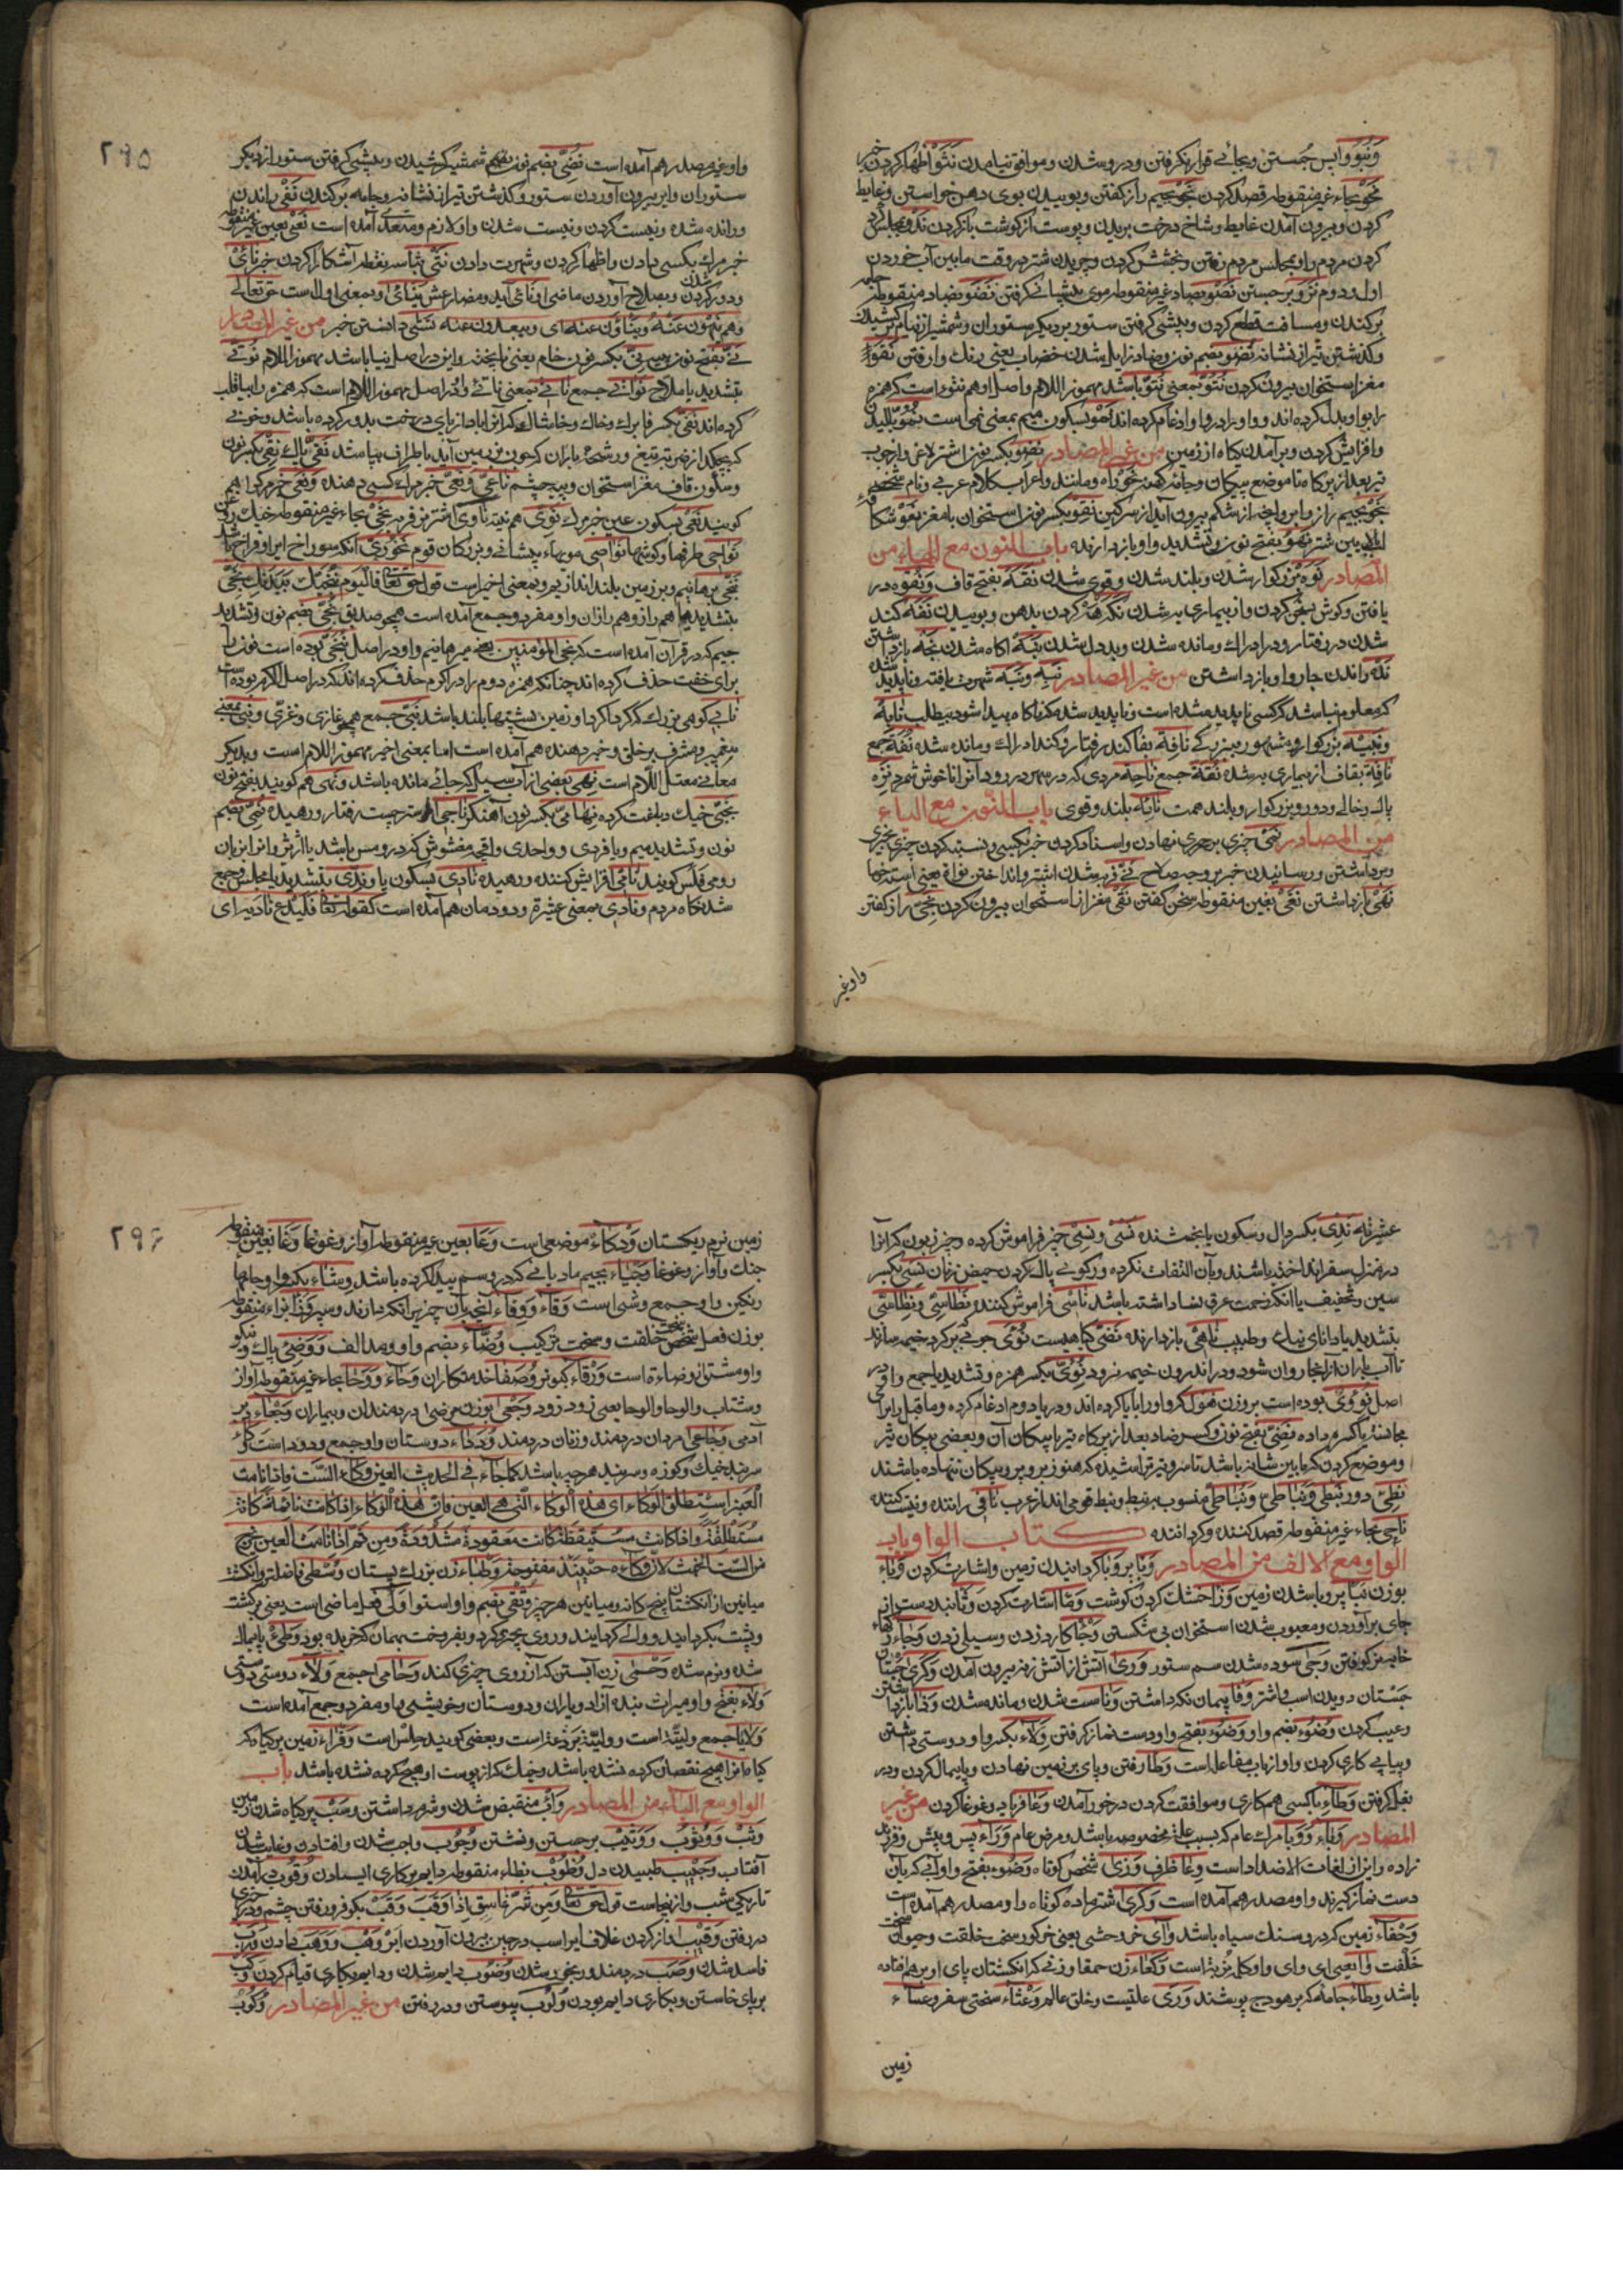 ونبو واپس جستن وبجائے قرار نکرفتن ودرو شدن وموافق نیامدن نثو اظهار کردن خبر
نحو بحاء غیر منقوطه قصد کردن نجو بجیم راز کفتن وبوییدن بوی دهن خواستن وغایط
کردن وبیرون آمدن غایط وشاخ درخت بریدن وپوست از کوشت باز کردن ندو بمجلس کرد
کردن مردم را وبمجلس مردم رفتن وبخشش کردن وچریدن شتر در وقت مابین آب خوردن
اول ودوم نزو برجستن نصو بصاد غیر منقوطه موی پیشانے کرفتن نضو بضاد منقوطه جامه
برکندن ومسافت قطع کردن وپیشی کرفتن ستور بر دیکر ستوران وشمشیر از نیام برکشیدن
وکذشتن تیر از نشانه نضو بضم نون وضاد زایل شدن خضاب یعنی رنك وا رفتن نقو
مغز استخوان بیرون کردن نتو بمعنی نتو باشد مهموز اللام واصل او هم نتوء است که همزه
را بواو بدل کرده اند وواو را در واو ادغام کرده اند نمو بسکون میم بمعنی نمی است نمو بالیدن
وافزایش کردن وبرآمدن کیاه از زمین من غیر المصادر نضو بکسر نون اشتر لاغر وان چوب
تیر بعد از پرکاه تا موضع پیکان وجامه کهنه نحو راه ومانند واعراب کلام عربی ونام شخصے
نجو بجیم راز وابر وانچه از شکم بیرون آید از سرکین نقو بکسر نون استخوان با مغز نغو شکاف
لب زیرین شتر نهو بفتح نون وتشدید واو باز دارنده باب النون مع الهاء من
المصادر نوه بزرکوار شدن وبلند شدن وقوی شدن نقه بفتح قاف ونقوه در
یافتن وکوش بسخن کردن واز بیماری به شدن نکه هه کردن بدهن وبوییدن نفه کند
شدن در رفتار ودر ادراك ومانده شدن وبد دل شدن نبه آکاه شدن نجه باز داشتن
نده راندن جاروا وباز داشتن من غیر المصادر نبه ونبه شهرت یافته وناپدید شده
که معلوم نباشد که کسی ناپدید شده است وناپدید شده که ناکاه پیدا شود بیطلب نابه
ونبیه بزرکوار ومشهور ببزرکے نافه بفا کند رفتار وکند ادراك ومانده شده نقه جمع
ناقه بقاف از بیماری به شده نقه جمع ناجه مردی که در شهر در رود وآنرا ناخوش شمرد نزه
پاك وخالے ودور وبزرکوار وبلند همت نائه بلند وقوی باب النون مع الیاء
من المصادر نصی چیزی بر چیزی نهادن واسناد کردن خبر بکسی ونسبت کردن چیزی بچیزی
وبرداشتن ورسانیدن خبر بر وجه صلاح نی فربه شدن اشتر وانداختن نواة یعنی استه خرما
نهی باز داشتن نغی بغین منقوطه سخن کفتن نقی مغز از استخوان بیرون کردن نجی راز کفتن
واو غیر
۲۹۵
واو غیر مصدر هم آمده است نضی بضم نون شمشیر کشیدن وپیشی کرفتن ستور از دیکر
ستوران وابر بیرون آوردن ستور وکذشتن تیر از نشانه وجامه برکندن نفی راندن
ورانده شده ونیست کردن ونیست شدن واو لازم ومتعدی آمده است نعی بعین غیر منقوطه
خبر مرك بکسی دادن واظهار کردن وشهرت دادن نثی بثاء سه نقطه آشکارا کردن خبر نأی
ودور کردن وبصلاح آوردن ماضی او نای آید ومضارعش ینای وبمعنی اول است حق تعالے
وهم ینهون عنه ویناون عنه ای ویبعدون عنه نشی دانستن خبر من غیر المصادر
نی بفتح نون پیه نی بکسر نون خام یعنی ناپخته واین در اصل نیا باشد مهموز اللام نوتی
بتشدید یا ملاح نواتی جمع ناتی بمعنی ناتی واو در اصل مهموز اللام است که همزه را بیا قلب
کرده اند نفی بکسر فا برك وخاك وخاشاك که آنرا باد از پای درخت بدور کرده باشد وخونے
که بچکد از زخم تیر وتیغ ورشحه باران که چون بزمین آید باطراف بپاشد نقی پاك نقی بکسر نون
وسکون قاف مغز استخوان وپیه چشم ناعی ونعی خبر مرك کسی دهنده ونعی خبر مرك را هم
کویند نعی بسکون عین خبر مرك نوی هم نیت ناوی اشتر نر فربه نحی بحاء غیر منقوطه خیك روغن
نواحی طرفها وکوشها نواصی موهاء پیشانے وبزرکان قوم نخوری آنکه سوراخ او فراخ باشد
نجی برهانیم وبر زمین بلند اندازیم وبمعنی اخیر است قول حق تعالے فالیوم ننجیك ببدنك نجی
بتشدید یا هم راز وهم رازان واو مفرد وجمع آمده است همچو صدیق نجی بضم نون وتشدید
جیم که در قرآن آمده است که نجی المؤمنین یعنی میرهانیم واو در اصل ننجی بوده است نون را
برای خفت حذف کرده اند چنانکه همزه دوم را در اکرم حذف کرده اند که در اصل ااکرم بوده است
نابی کوهی بزرك که کرداکرد او زمین پشتها بلند باشد نبی جمع همچو غازی وغزی ونبی بمعنی
پیغمبر ومشرف بر خلق وخبر دهنده هم آمده است اما بمعنی اخیر مهموز اللام است وبدیکر
معانی معتل اللام است نهی بعضی از آب سیل که جائے مانده باشد ونهی هم کویند بفتح نون
نجی خیك دباغت کرده نهامی بکسر نون آهنکر ناجی شتر چست رفتار ورهیده نمی بضم
نون وتشدید میم ویا فردی وواحدی واقچه مغشوش که در ومس باشد یا ارزیز وانرا بزبان
رومی فلس کویند نامی افزایش کننده ورهیده نادی بسکون یا وندی بتشدید یا مجلس وجمع
شدنکاه مردم ونادی بمعنی عشیرة ودودمان هم آمده است کقوله تعالے فلیدع نادیه ای
عشیرته ندی بکسر دال وسکون یا بخشنده نسی ونسی چیز فراموش کرده وچیز زبون که آنرا
در منزل سفر انداخته باشند وبآن التفات نکرده ورکوئے پاك کردن حیض زنان نسی بکسر
سین وتخفیف یا آنکه زحمت عرق نسا داشته باشد ناسی فراموش کننده نطاسی ونطاسی
بتشدید یا دانای نیك وطبیب ناهی باز دارنده نفی کیاهیست نؤی جوئے که بر کرد خیمه سازند
تا آب باران از آنجا روان شود ودر اندرون خیمه نرود نؤی بکسر همزه وتشدید یا جمع واو در
اصل نؤوی بوده است بر وزن فعول که واو را بیا کرده اند ودر یا دوم ادغام کرده وما قبل را برای
مجانست یا کسره داده نضی بفتح نون وکسر ضاد بعد از پرکاه تیر تا پیکان آن وبعضی پیکان تیر
وموضع کردن که مابین شانه باشد تا سر وتیر تراشیده که هنوز برو پر وپیکان ننهاده باشند
نطی دور نبطی ونباطی ونباطی منسوب به نبیط ونبط قومی اند از عرب نافی راننده ونیست کننده
ناحی بحاء غیر منقوطه قصد کننده وکرداننده کتاب الواو باب
الواو مع الالف من المصادر وبا پر وبا کردانیدن زمین واشارت کردن وباء
بوزن نبا پر وبا شدن زمین وزأ خشك کردن کوشت ومأ اشارت کردن وثأ بند دست از
جای برآوردن ومعیوب شدن استخوان بی شکستن وجأ کارد زدن وسیلی زدن وجاء رکهاء
خایه نر کوفتن وجی سوده شدن سم ستور وری آتش از آتش زنه بیرون آمدن وکری جستان
جستان دویدن اسب واشتر وفا پیمان نکه داشتن ونا سست شدن ومانده شدن وذا باز داشتن
وعیب کردن وضوء بضم واو ووضوء بفتح واو دست نماز کرفتن ولاء بکسر واو دوستی داشتن
وپیاپے کاری کردن واو از باب مفاعله است وطأ رفتن وپای بر زمین نهادن وپایمال کردن ودر
بغل کرفتن وطاء با کسی هم کاری وموافقت کردن در خور آمدن وغا فریاد وغوغا کردن من غیر
المصادر وباء ووبا مرك عام که بسبب علة مخصوصه باشد ومرض عام وراء پس وپیش وفرزند
زاده واین از لغات الاضداد است وعا ظرف وزی شخص کوتاه وضوء بفتح واو آبی که بآن
دست نماز کیرند واو مصدر هم آمده است وکری اشتر ماده کوتاه واو مصدر هم آمده است
وحفاء زمین که درو سنك سیاه باشد وأی خر وحشی یعنی خر کور سخت خلقت وحیوان سخت
خلقت وا یعنی ای وای واو کلمه ندبه است وکعاء زن حمقا وزنے که انکشتان پای او بر هم افتاده
باشد وطاء جامه که بر هودج پوشند وری علتیست وخلق عالم وعثاء سختی سفر وعساء
زمین
۲۹۶
زمین نرم ریکستان ودکاء موضعی است وعا بعین غیر منقوطه آواز وغوغا وغا بغین منقوطه
جنك وآواز وغوغا وجیاء بجیم مادیانے که درو سم پیدا کرده باشد وشاء بکسر واو جامها
رنکین واو جمع وشی است وقاء ووقاء آنچه بآن چیزی را نکه دارند وسپر وزا بزاء منقوطه
بوزن فعل شخص سخت خلقت وسخت ترکیب وضاء بضم واو ومد الف ووضی پاك ونیکو
واو مشتق از وضاءة است ورقاء کبوتر وصفا خدمتکاران وحاء ووحا بحاء غیر منقوطه آواز
وشتاب والوحا والوحا یعنی زود زود وجعی بوزن مرضی دردمندان وبیماران
آدمی وجاعی مردان دردمند وزنان دردمند وددآء دوستان واو جمع ودود است وکاء
سربند خیك وکوزه وسربند هر چه باشد کما جاء فی الحدیث العین وکاء السته فاذا نامت
العین استطلق الوکاء ای هذه الوکاء التی هی العین فان هذه الوکاء اذا کانت نائمة کانت
مستطلقة واذا کانت مستیقظة کانت معقودة مشدودة ومن ثم اذا نامت العین خرج
من الست الخبث لان وکاءه حینئذ مفتوحة وطباء زن بزرك پستان وسطی فاضلتر وانکشت
میانین از انکشتان پنج کانه ومیانین هر چیز وثقی بضم واو استوار ولی فعل ماضی است یعنی برکشت
وپشت بکردانید ووالی کردانید وروی بچیزی کرد وبفروخت بهمان که خریده بود وطئ پایمال
شده ونرم شده وحمی زن آبستن که آرزوی چیزی کند وحامی جمع ولاء دوستی دوستی
ولاء بفتح واو میراث بنده آزاد ویاران ودوستان وخویشی واو مفرد وجمع آمده است
ولایا جمع ولیة است وولیة برذعه است وبعضی کویند حلس است وفراء زمین پر کیاه که
کیاه آنرا هیچ نقصان کرده نشده باشد وخیك که از پوست او هیچ کرده نشده باشد باب
الواو مع الباء من المصادر وأب منقبض شدن وشرم داشتن وسب پر کیاه شدن زمین
وثب ووثوب ووثیب برجستن ونشستن وجوب واجب شدن وافتادن وغایب شدن
آفتاب وجیب طپیدن دل وظوب بظاء منقوطه دایم بر کاری ایستادن وقوب درآمدن
تاریکی شب واز اینجاست قول حق تعالے ومن شر غاسق اذا وقب وقب بکو فرو رفتن چشم ودر چیزی
در رفتن وقیب آواز کردن غلاف نره اسب در حین بیرون آوردن آن وهب ووهب دادن ورب
فاسد شدن وصب دردمند ورنجور شدن وصوب دایم شدن ودایم بکاری قیام کردن وکب
بر پای خاستن وبکاری دایم بودن ولوب پیوستن ودر رفتن من غیر المصادر وکوب